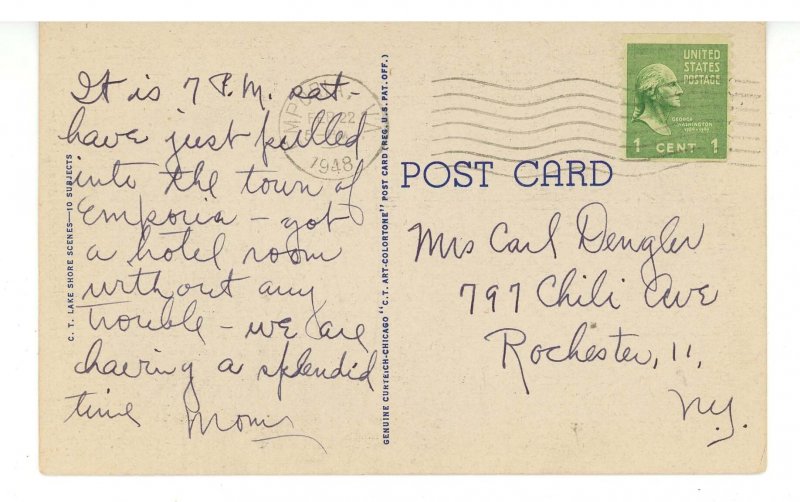 It is 7 P.M. sat-
have just pulled
into the town of
Emporia - got
a hotel room
without any
trouble - we are
having a splendid
time
Mom
C. T. LAKE SHORE SCENES—10 SUBJECTS
GENUINE CURTEICH-CHICAGO "C. T. ART-COLORTONE" POST CARD (REG. U. S. PAT. OFF.)
FEB 22
1948
UNITED
STATES
POSTAGE
GEORGE
WASHINGTON
1 CENT 1
POST CARD
Mrs Carl Dengler
797 Chili Ave
Rochester, 11,
N.Y.